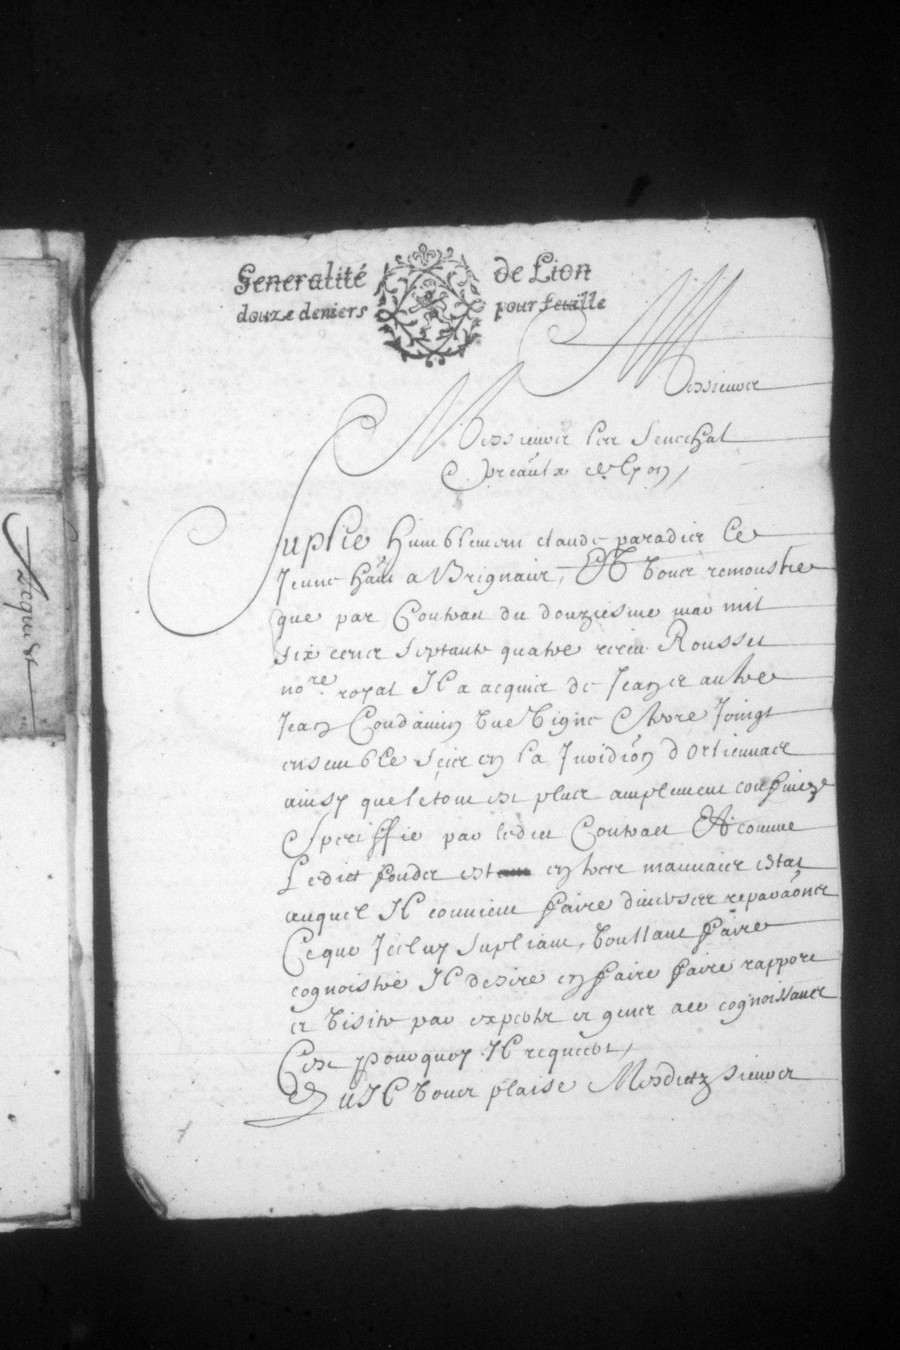 Generalité de Lion
douze deniers pour feuille
Messieurs
Messieurs les Seneschal
Et presidiaulx de Lyon,
Suplie humblement claude paradis le
Jeune hānt a Brignais, Et vous remonstre
que par Contract du douziesme may mil
six cents septante quatre receu Rousset
nore. royal Il a acquis de Jean et autre
Jean Condamin une vigne terre Joingt
ensemble size en la Juridiōn d'orliennas
ainsy que le tout est plus amplement confiné
Speciffié par ledict Contract Et comme
Lesdicts fonds sont en tres mauvais estat
auquel Il convient faire diverses reparaōns
Ce que Icelluy Supliant, voullant faire
cognoistre Il desire en faire faire rapport
et visite par experts et gens a ce cognoissants
C'est pourquoy Il recquiert,
Qu'Il vous plaise Mesdictz sieurs
Acquist